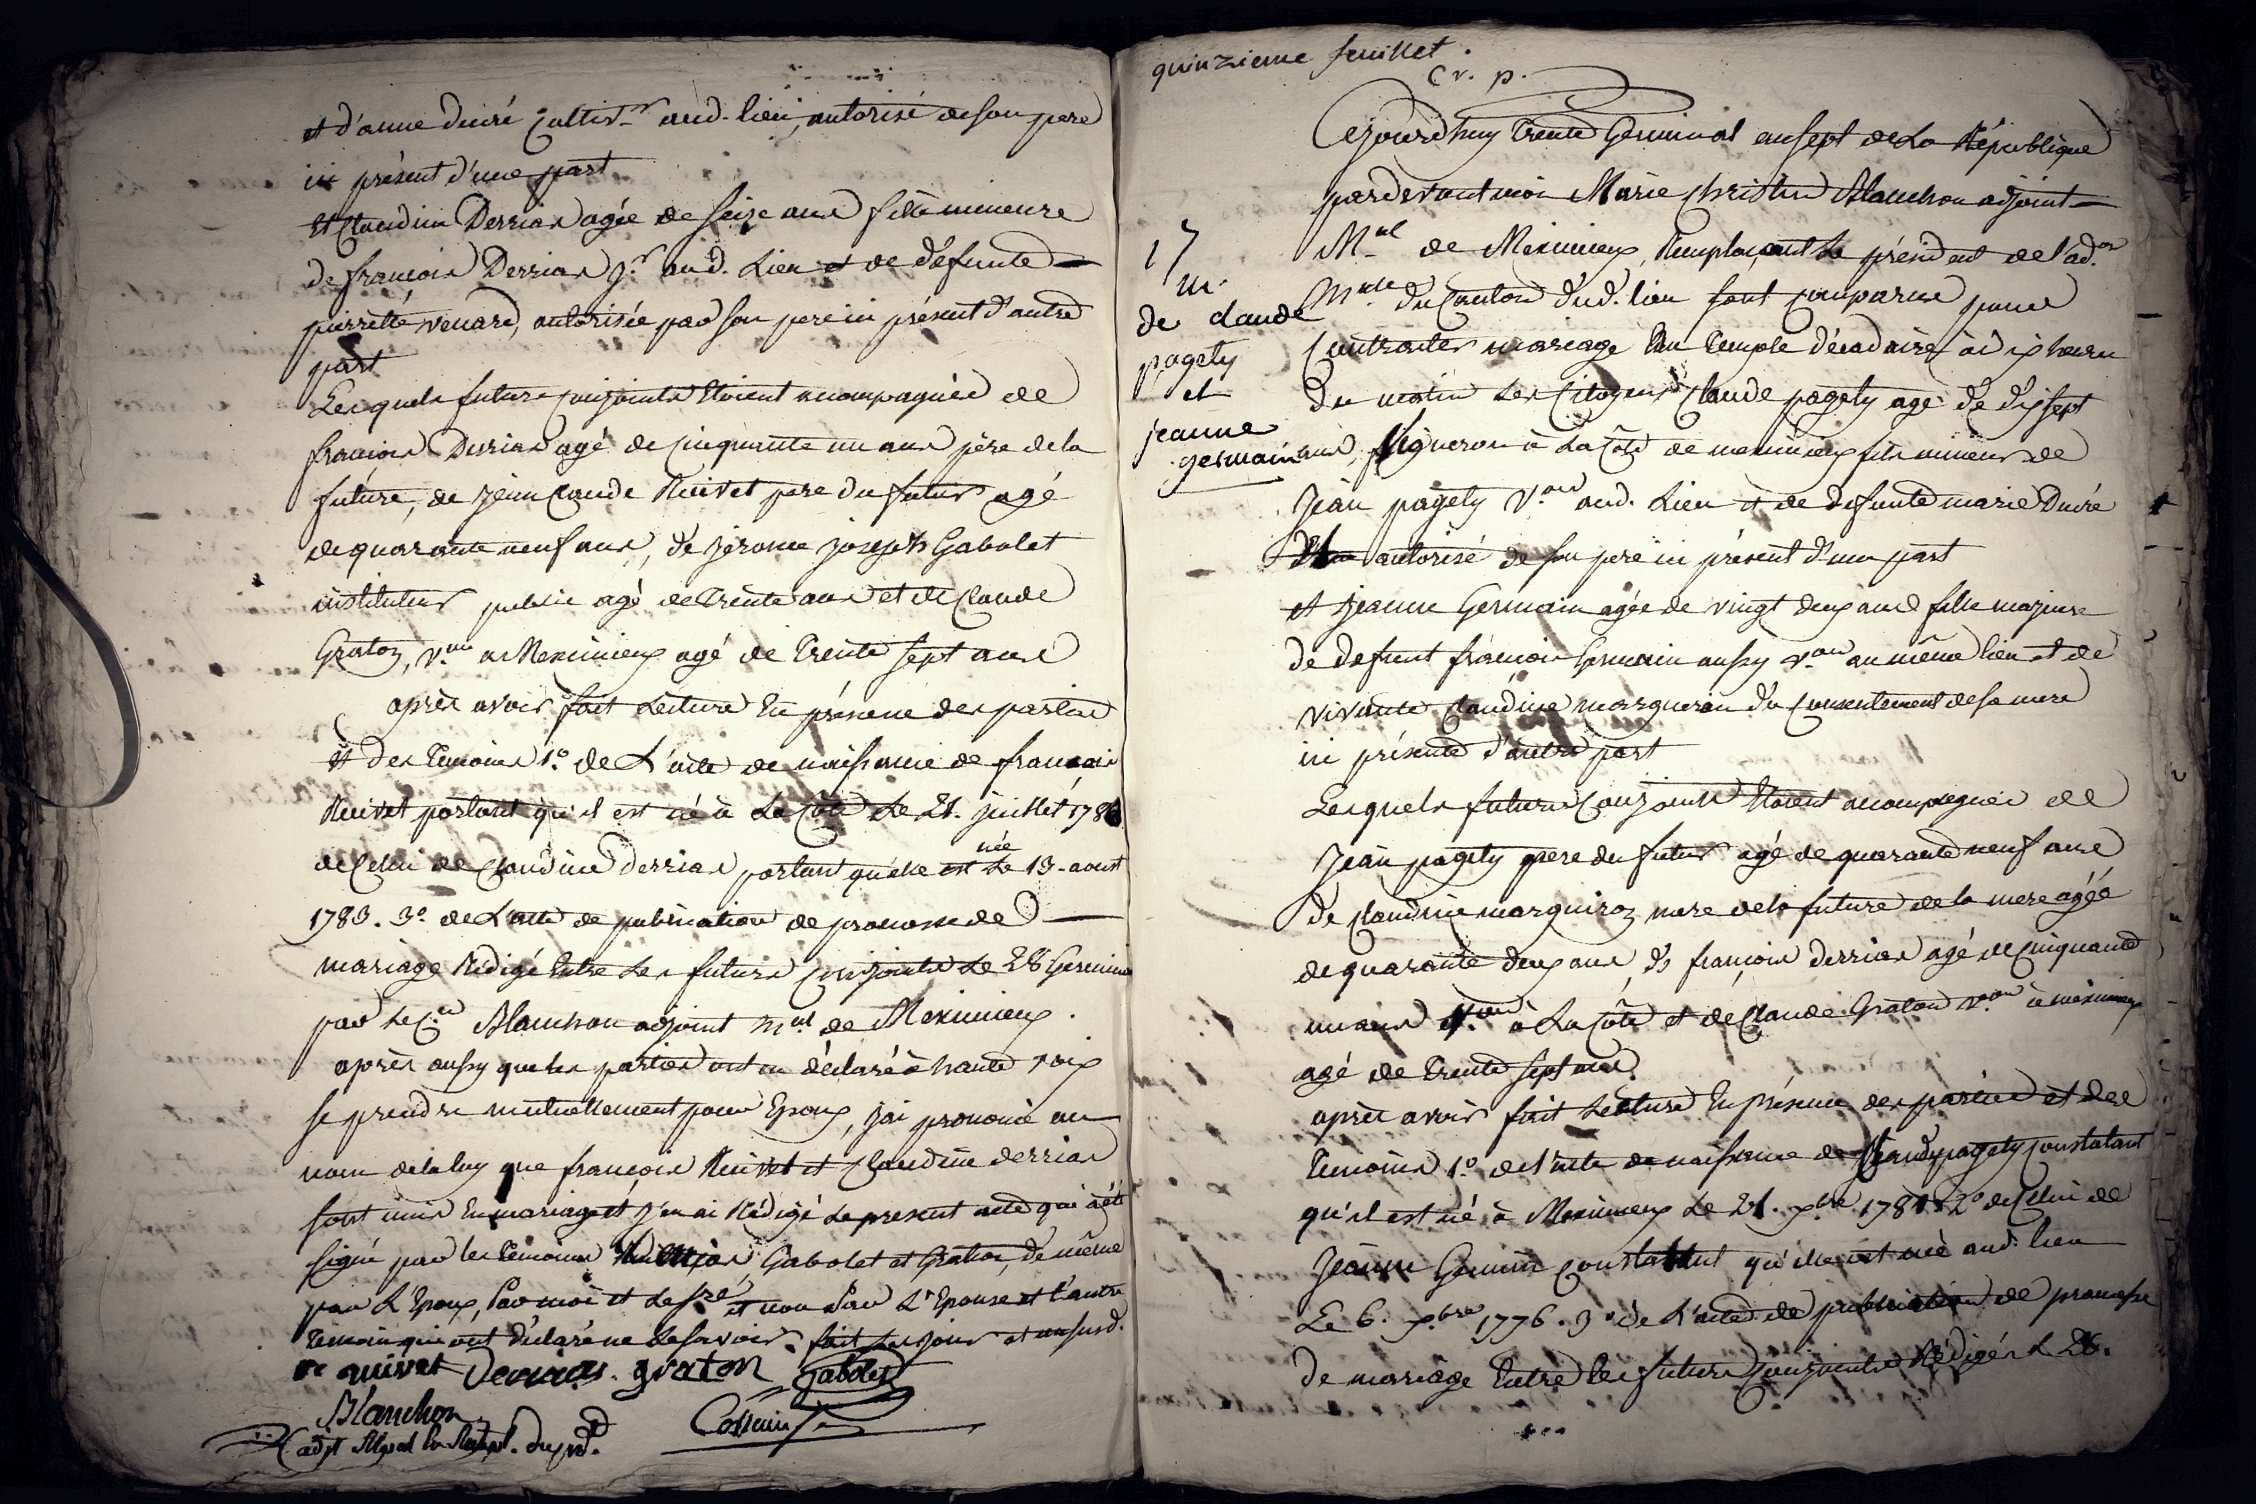 et d'anne ducré Cultiv.r aud. lieu, autorisé de son pere
ici présent d'une part
Et Claudine Derrias agée de seize ans fille mineure
de francois Derrias aud. Lieu et de défunte
pierrette venard, autorisée par son pere ici présent d'autre
part
Lesquels futurs conjoints Etoient accompagnés de
francois Derrias agé de cinquante un ans père de la
future, de Jean Claude Quivet pere du futur agé
de quarante neuf ans, de Jérome Joseph Gabolet
instituteur public agé de trente ans et de Claude
Graton, v.on a Meximieux agé de trente sept ans
après avoir fait Lecture En présence des parties
et des temoins 1.o de L'acte de naissance de francois
Quivet portant qu'il est né à La Côte Le 21. juillet
de Celui de Claudine derrias portant qu'elle est née Le 13. aout
1783. 3.o de L'acte de publication de promesse de
mariage Rédigé Entre Les futurs conjoints Le 28 Germinal
par Le C.en Blanchon adjoint m.al de Meximieux.
après aussy que les parties ont eu déclaré à haute voix
se prendre mutuellement pour Epoux, j'ai prononcé au
nom de la loy que francois Quivet et Claudine derrias
sont unis En mariage et j'en ai Rédigé Le present acte qui a été
signé par les temoins Gabolet et Graton, de même
par L'Epoux, Par moi et Le sre et non Par L'Epouse et l'autre
temoin qui ont déclaré ne Le savoir. fait Les jour et an susd.
quivet Derrias. graton Gabolet
Blanchon
adjt
quinzieme feuillet.
C v. p.
17
m.
de claude
pagety
et
jeanne
germain
Cejourd'huy trente Germinal an sept de La République
pardevant moi Marie Christin Blanchon adjoint
M.al de Meximieux, Remplaçant Le président de l'ad.on
M.ale du Canton dud. lieu sont comparus pour
Contracter mariage Au temple décadaire à dix heures
du matin Les Citoyens Claude pagety agé de dixsept
ans, Vigneron à La Côte de meximieux fils mineur de
Jean pagety V.on aud. Lieu et de defunte marie Ducré
autorisé de son pere ici présent d'une part
et Jeanne Germain agée de vingt deux ans fille majeure
de defunt francois Germain aussy v.on au même lieu et de
vivante Claudine marqueron du Consentement de sa mere
ici présente d'autre part
Lesquels futurs Conjoints Etoient accompagnés de
Jean pagety pere du futur agé de quarante neuf ans
de Claudine marquiron mere de la future de la mere agée
de quarante deux ans, de francois derrias agé de Cinquante
un ans V.on à La Côte et de Claude Graton V.on à meximieux
agé de trente sept ans.
après avoir fait Lecture En présence des parties et des
temoins 1.o de l'acte de naissance de Claude pagety constatant
qu'il est né à Meximieux Le 21. xbre 1781 2.o de Celui de
Jeanne Germain constatant qu'elle est née aud. lieu
Le 6. xbre 1776. 3.o de L'acte de publication de promesse
de mariage Entre les futurs conjoints Rédigé L 28.